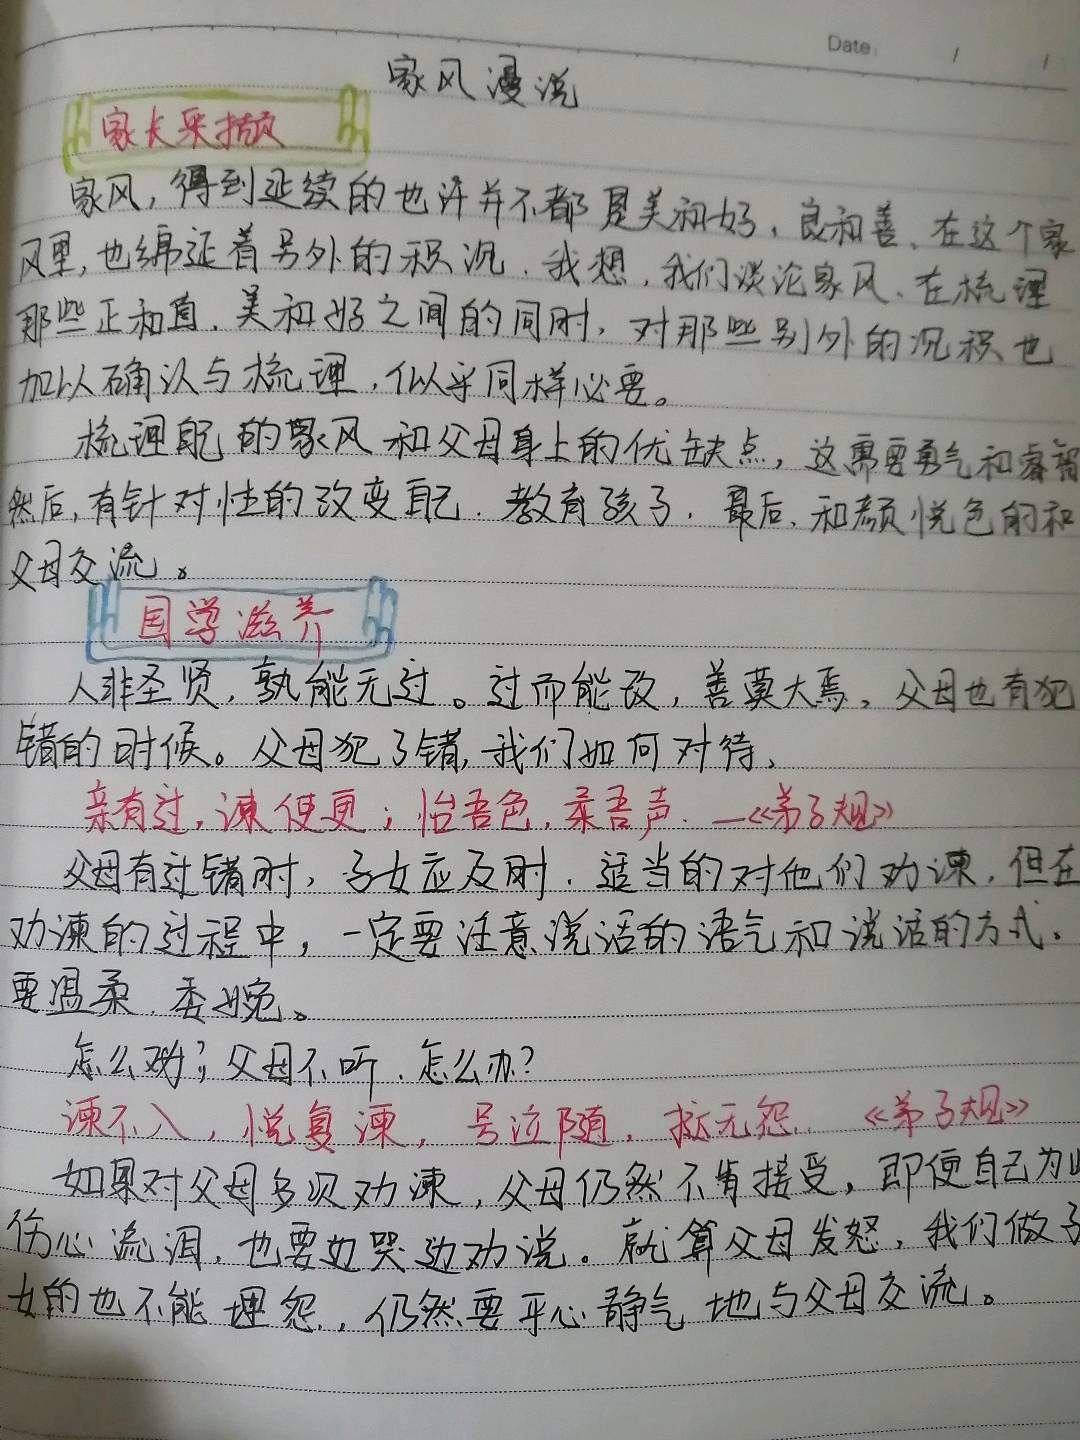 Date: / /
家风漫说
家长采撷
家风，得到延续的也许并不都是美和好，良和善、在这个家
风里，也绵延着另外的积沉．我想，我们谈论家风、在梳理
那些正和直．美和好之间的同时，对那些别外的沉积也
加以确认与梳理，似乎同样必要。
梳理自己的家风和父母身上的优缺点，这需要勇气和睿智
然后，有针对性的改变自己．教育孩子．最后、和颜悦色的和
父母交流。
国学滋养
人非圣贤，孰能无过。过而能改，善莫大焉。父母也有犯
错的时候。父母犯了错，我们如何对待、
亲有过，谏使更；怡吾色，柔吾声．—《弟子规》
父母有过错时，子女应及时．适当的对他们劝谏．但在
劝谏的过程中，一定要注意说话的语气和说话的方式．
要温柔．委婉。
怎么劝；父母不听．怎么办？
谏不入，悦复谏，号泣随，挞无怨．《弟子规》
如果对父母多次劝谏，父母仍然不肯接受，即便自己为此
伤心流泪，也要边哭边劝说。就算父母发怒，我们做子
女的也不能埋怨，仍然要平心静气地与父母交流。